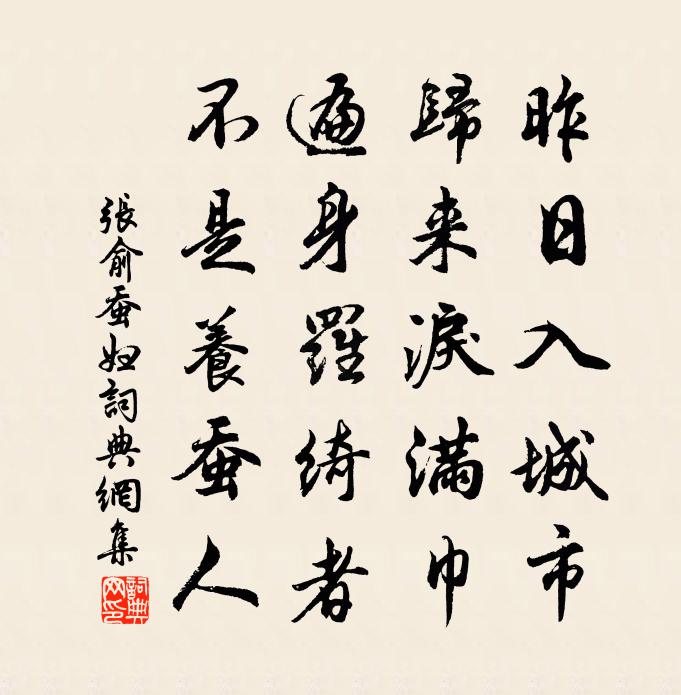 昨日入城市
歸来淚滿巾
遍身羅綺者
不是養蚕人
張俞蚕妇詞典網集
詞典網印